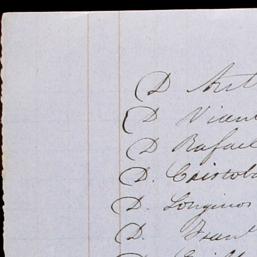 D Ant
D Vicen
D Rafael
D. Cristob
D. Longinos
D. Fran
D. Guill